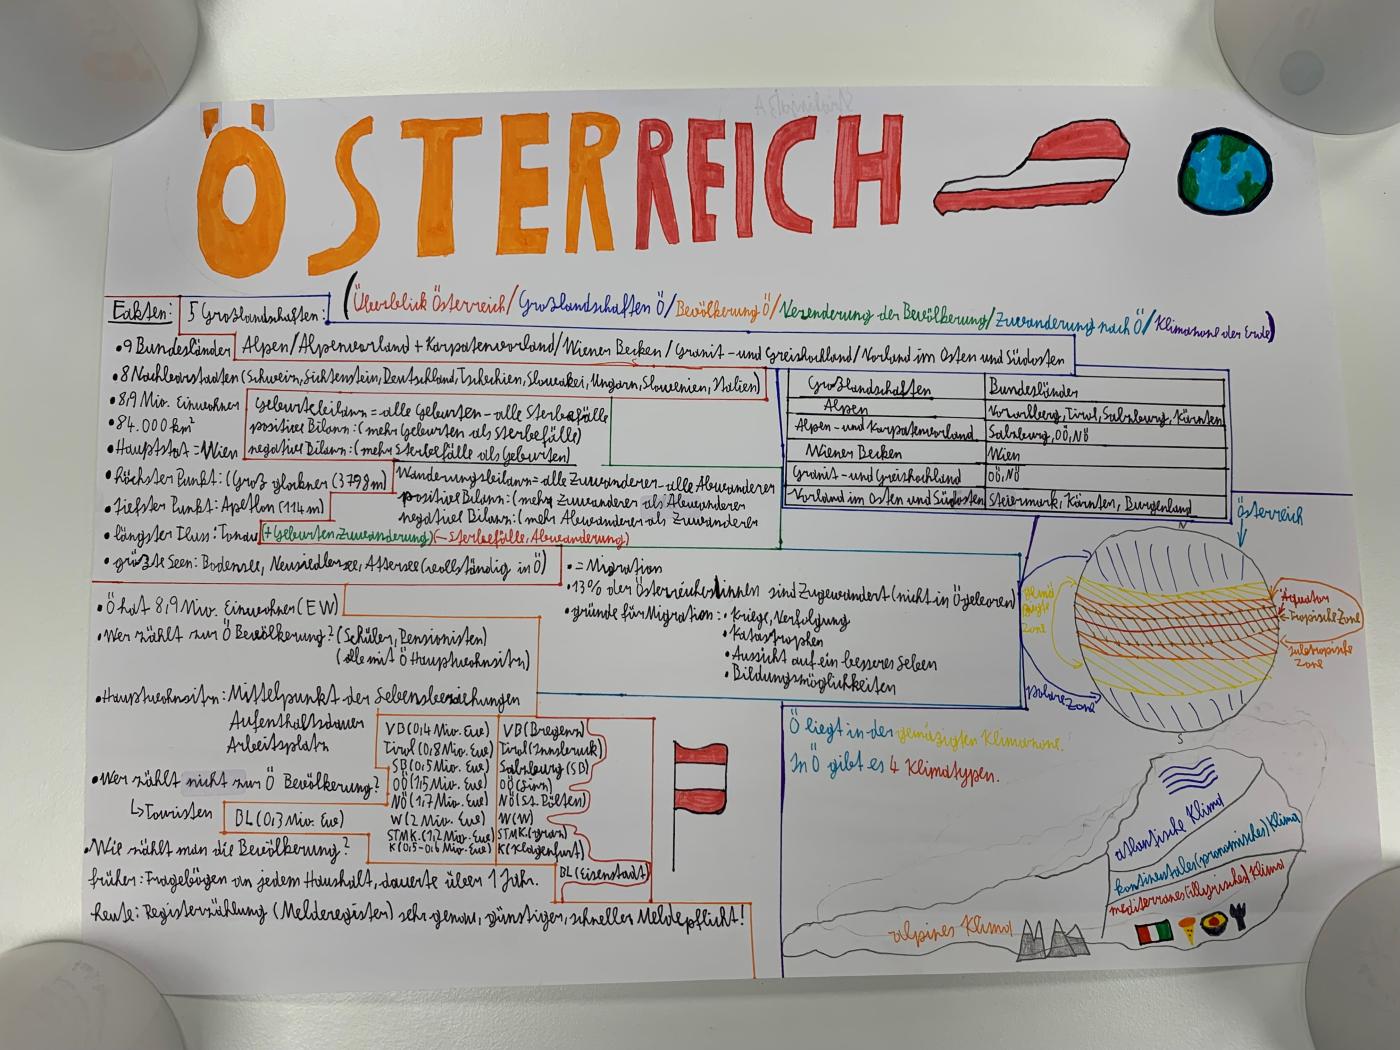 ÖSTERREICH
(Überblick Österreich/Großlandschaften Ö/Bevölkerung Ö/Veränderung der Bevölkerung/Zuwanderung nach Ö/Klimazone der Erde)
Fakten:
5 Großlandschaften:
Alpen/Alpenvorland + Karpatenvorland/Wiener Becken/Granit-und Greishochland/Vorland im Osten und Südosten
•9 Bundesländer
•8 Nachbarstaaten (Schweiz, Lichtenstein, Deutschland, Tschechien, Slowakei, Ungarn, Slowenien, Italien)
•8,9 Mio. Einwohner
•84.000 km²
•Hauptstat-Wien
•höchster Punkt: (Groß glockner (3798m)
•tiefster Punkt: Apetlon (114m)
•längster Fluss: Donau
•größte Seen: Bodensee, Neusiedlersee, Attersee (vollständig in Ö)
Geburtenbilanz = alle Geburten - alle Sterbefälle
positive Bilanz: (mehr Geburten als Sterbefälle)
negative Bilanz: (mehr Sterbefälle als Geburten)
Wanderungsbilanz = alle Zuwanderer - alle Abwanderer
positive Bilanz: (mehr Zuwanderer als Abwanderer
negative Bilanz: (mehr Abwanderer als Zuwanderer
(+Geburten, Zuwanderung) (- Sterbefälle, Abwanderung)
Großlandschaften Bundesländer
Alpen Vorarlberg, Tirol, Salzburg, Kärnten
Alpen-und Karpatenvorland Salzburg, OÖ, NÖ
Wiener Becken Wien
Granit-und Greishochland OÖ, NÖ
Vorland im Osten und Südosten Steiermark, Kärnten, Burgenland
•= Migration
•13% der ÖsterreicherInnen sind Zugewandert (nicht in Ö geboren)
•gründe für Migration: •Kriege, Verfolgung
•Katastrophen
•Aussicht auf ein besseres Leben
•Bildungsmöglichkeiten
•Ö hat 8,9 Mio. Einwohner (EW)
•Wer zählt zur Ö Bevölkerung? (Schüler, Pensionisten)
(alle mit Ö Hauptwohnsitz)
•Hauptwohnsitz: Mittelpunkt der Lebensbeziehungen
Aufenthaltsdauer
Arbeitsplatz
•Wer zählt nicht zur Ö Bevölkerung?
↳Touristen
VB (0,4 Mio. Ew) VB (Bregenz)
Tirol (0,8 Mio. Ew) Tirol (Innsbruck)
SB (0,5 Mio. Ew) Salzburg (SB)
OÖ (1,5 Mio. Ew) OÖ (Linz)
NÖ (1,7 Mio. Ew) NÖ (St. Pölten)
W (2 Mio. Ew) W (W)
STMK. (1,2 Mio. Ew) STMK. (graz)
K (0,5-0,6 Mio. Ew) K (Klagenfurt)
BL (0,3 Mio. Ew)
BL (Eisenstadt)
•Wie zählt man die Bevölkerung?
früher: Fragebögen an jedem Haushalt, dauerte über 1 Jahr.
heute: Registerzählung (Melderegister) sehr genau, günstiger, schneller Meldepflicht!
Österreich
N
Äquator
Tropische Zone
subtropische
Zone
Polare Zone
S
Ö liegt in der gemäßigten Klimazone.
In Ö gibt es 4 Klimatypen.
atlantische Klima
kontinentales (pannonisches) Klima
mediterranes (illyrisches) Klima
alpines Klima